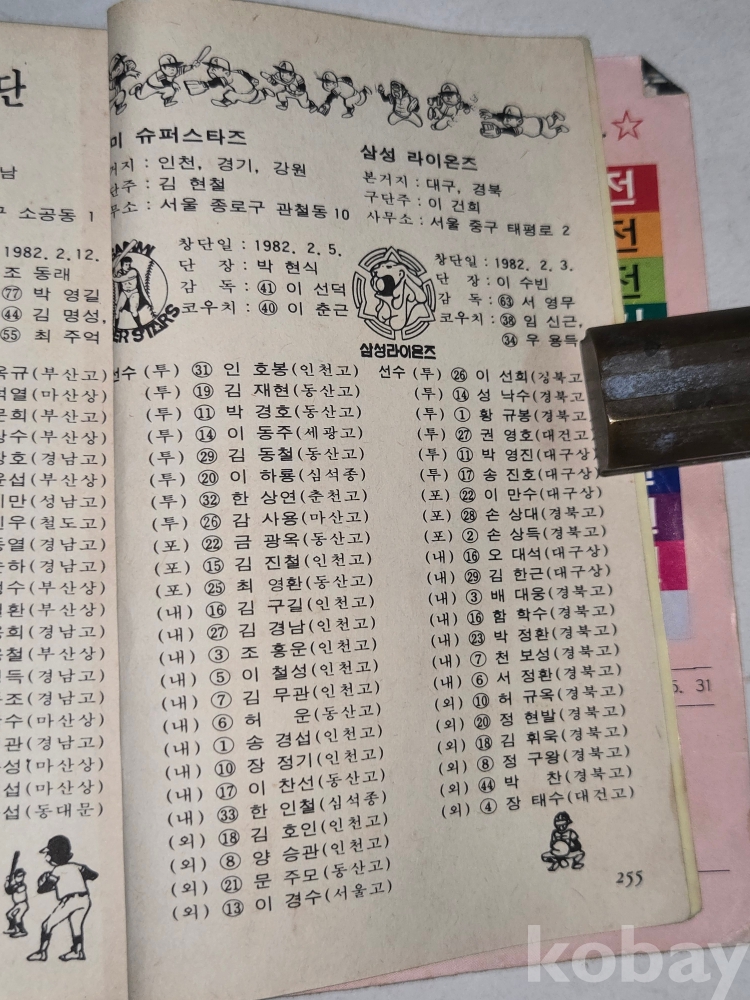 단
남
구 소공동 1
1982. 2. 12.
조 동래
㊆ 박 영길
㊹ 김 명성,
55 최 주억
옥규(부산고)
석열(마산상)
문희(부산고)
상수(부산상)
창호(경남고)
윤섭(부산상)
기만(성남고)
진우(철도고)
동열(경남고)
순하(경남고)
정수(부산상)
일환(부산상)
용희(경남고)
용철(부산상)
정득(경남고)
두조(경남고)
상수(마산상)
관(경남고)
우성(마산상)
섭(마산상)
섭(동대문)
미 슈퍼스타즈
거지 : 인천, 경기, 강원
단주 : 김 현철
무소 : 서울 종로구 관철동 10
창단일 : 1982. 2. 5.
단 장 : 박 현식
감 독 : ㊶ 이 선덕
코우치 : ㊵ 이 춘근
SAMMI
SUPER STARS
선수 (투) ㉛ 인 호봉(인천고)
(투) ⑲ 김 재현(동산고)
(투) ⑪ 박 경호(동산고)
(투) ⑭ 이 동주(세광고)
(투) ㉙ 김 동철(동산고)
(투) ⑳ 이 하룡(심석종)
(투) ㉜ 한 상연(춘천고)
(투) ㉖ 감 사용(마산고)
(포) ㉒ 금 광옥(동산고)
(포) ⑮ 김 진철(인천고)
(포) ㉕ 최 영환(동산고)
(내) ⑯ 김 구길(인천고)
(내) ㉗ 김 경남(인천고)
(내) ③ 조 흥운(인천고)
(내) ⑤ 이 철성(인천고)
(내) ⑦ 김 무관(인천고)
(내) ⑥ 허 운(동산고)
(내) ① 송 경섭(인천고)
(내) ⑩ 장 정기(인천고)
(내) ⑰ 이 찬선(동산고)
(내) ㉝ 한 인철(심석종)
(외) ⑱ 김 호인(인천고)
(외) ⑧ 양 승관(인천고)
(외) ㉑ 문 주모(동산고)
(외) ⑬ 이 경수(서울고)
삼성 라이온즈
본거지 : 대구, 경북
구단주 : 이 건희
사무소 : 서울 중구 태평로 2
창단일 : 1982. 2. 3.
단 장 : 이 수빈
감 독 : 63 서 영무
코우치 : ㊳ 임 신근,
㉞ 우 용득
삼성라이온즈
선수 (투) ㉖ 이 선희(경북고
(투) ⑭ 성 낙수(경북고
(투) ① 황 규봉(경북고
(투) ㉗ 권 영호(대전고
(투) ⑪ 박 영진(대구상
(투) ⑰ 송 진호(대구상)
(포) ㉒ 이 만수(대구상)
(포) ㉘ 손 상대(경북고)
(포) ② 손 상득(경북고)
(내) ⑯ 오 대석(대구상)
(내) ㉙ 김 한근(대구상)
(내) ③ 배 대웅(경북고)
(내) ⑯ 함 학수(경북고)
(내) ㉓ 박 정환(경북고)
(내) ⑦ 천 보성(경북고)
(내) ⑥ 서 정환(경북고)
(외) ⑩ 허 규옥(경북고)
(외) ⑳ 정 현발(경북고)
(외) ⑱ 김 휘욱(경북고)
(외) ⑧ 정 구왕(경북고)
(외) ㊹ 박 찬(경북고)
(외) ④ 장 태수(대전고)
255
전
전
전
5. 31
kobay